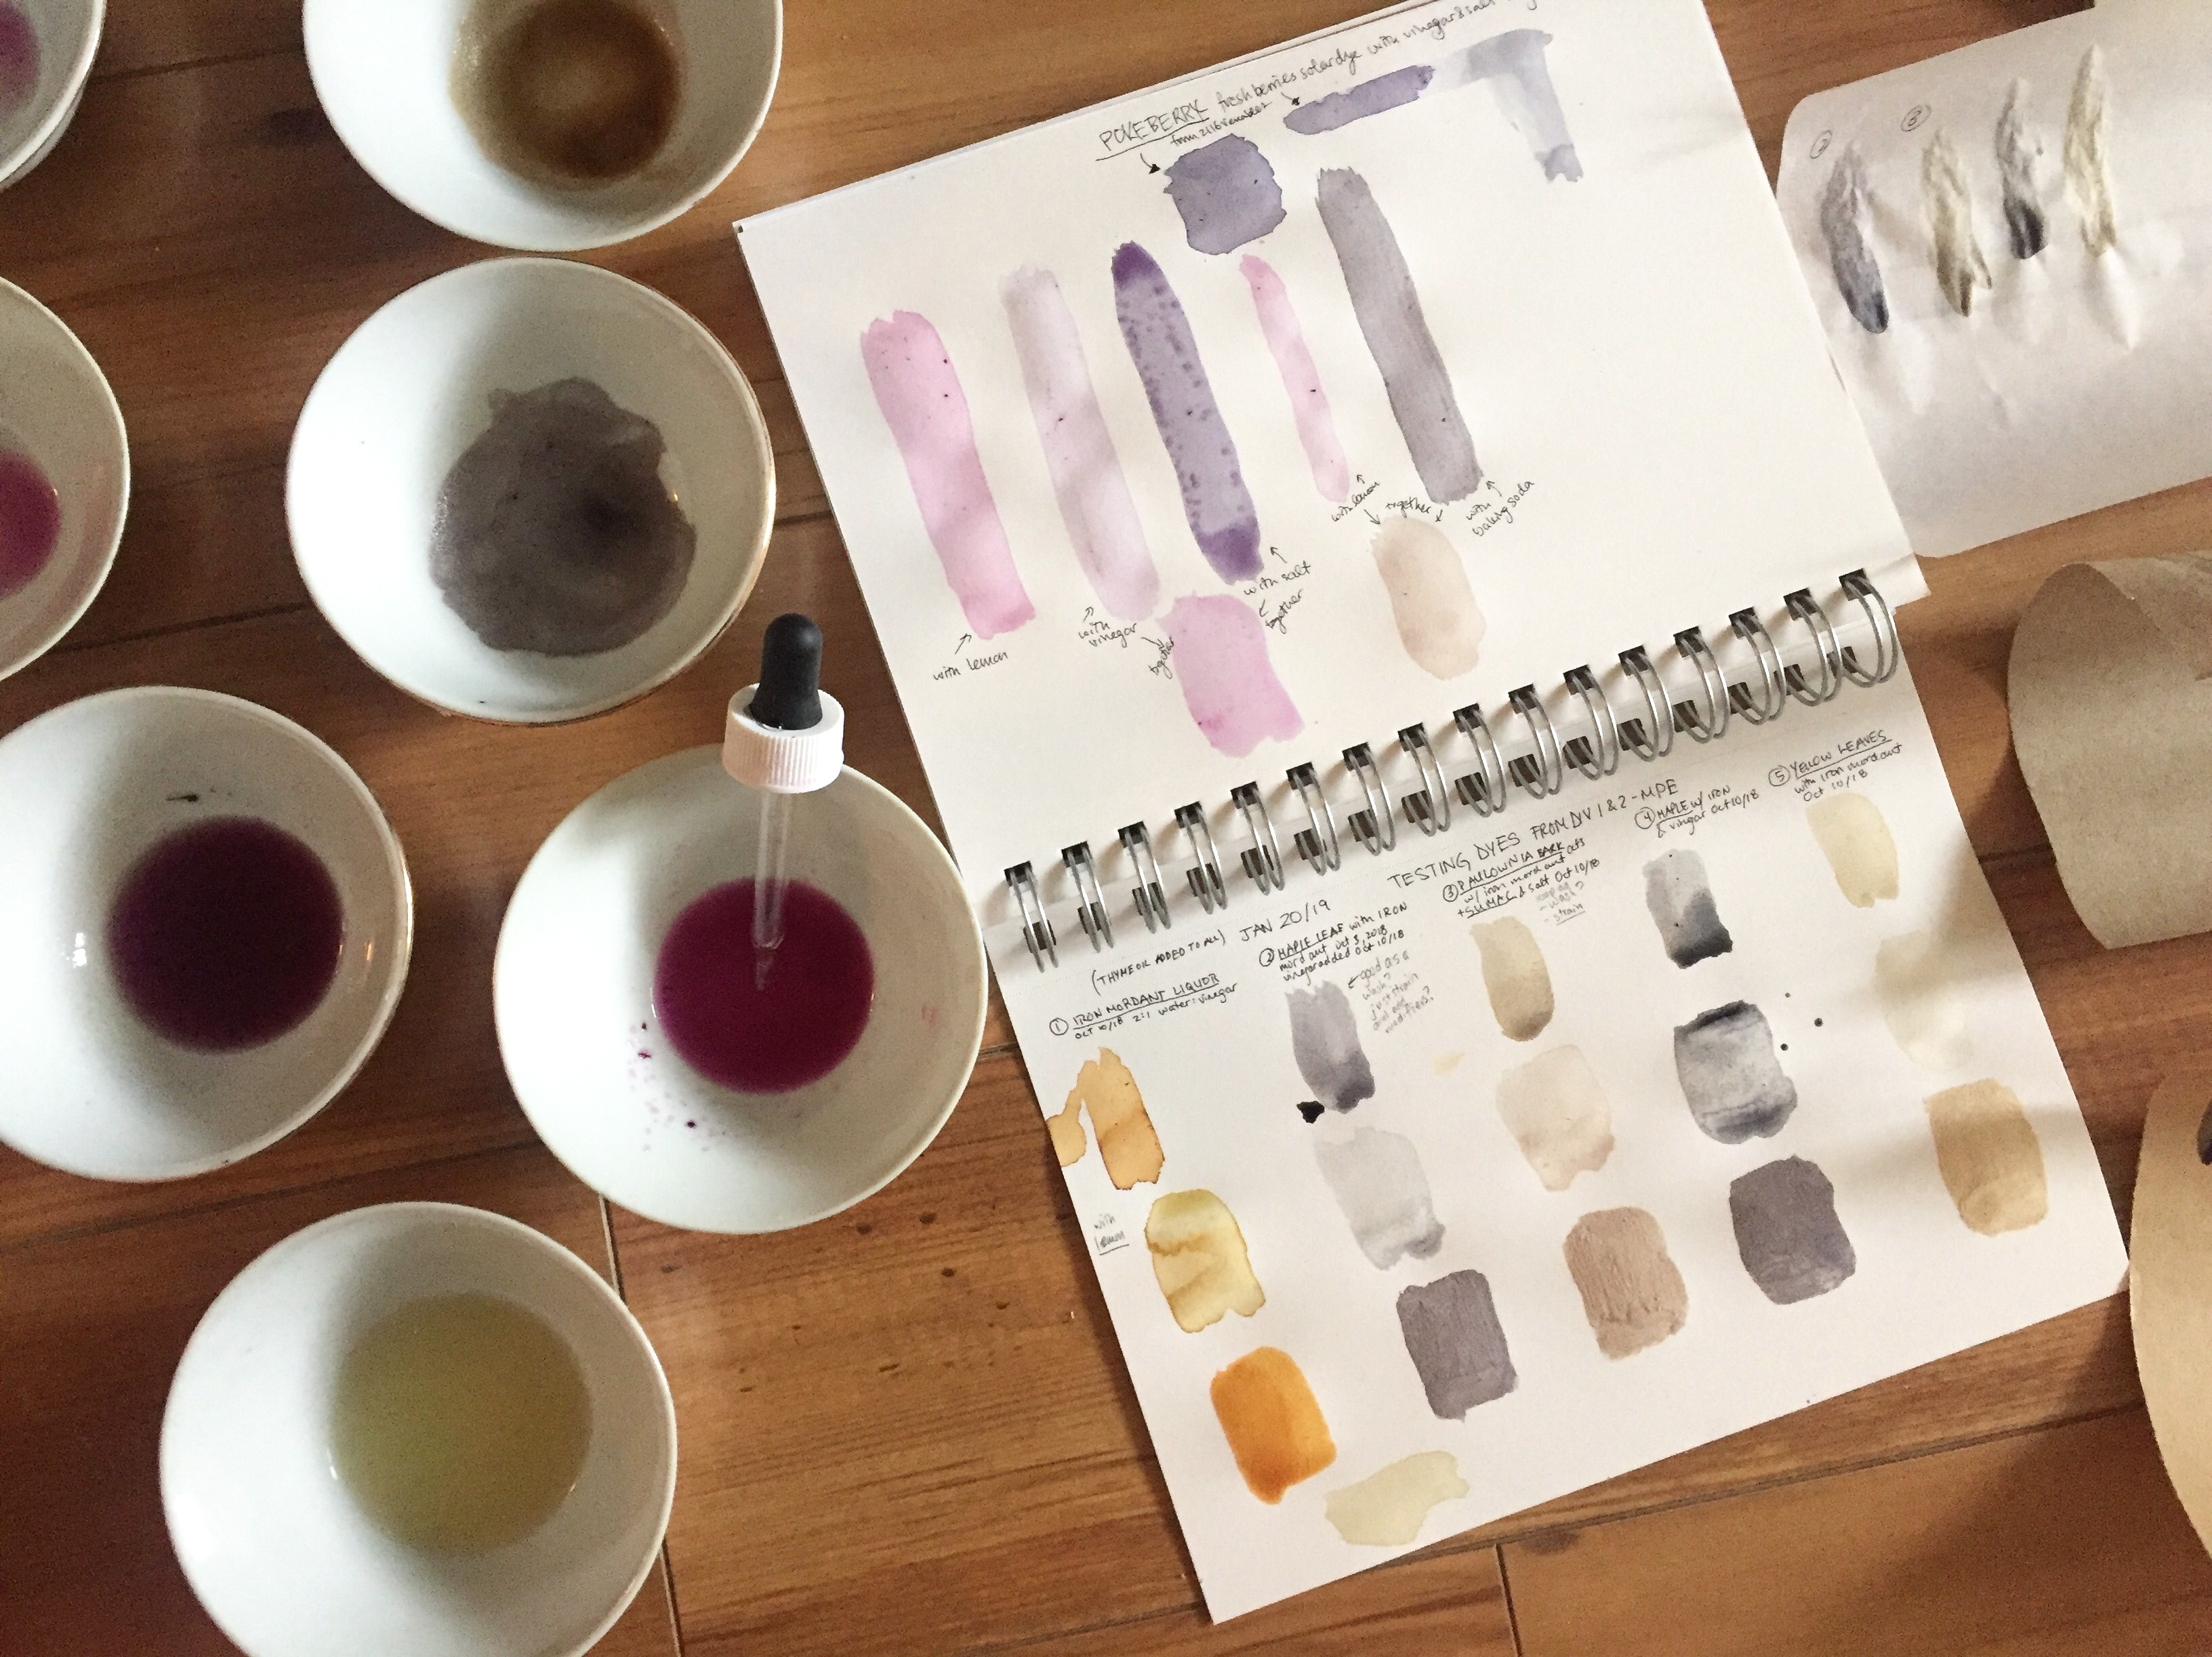 POKEBERRY fresh berries solar dye with vinegar & salt
from 2116 reminder
with lemon
with vinegar
together
with salt
together
with lemon
together
with baking soda
TESTING DYES FROM DIV 1 & 2 - MPE
(THYME OIL ADDED TO ALL) JAN 20/19
① IRON MORDANT LIQUOR
OCT 10/18 2:1 water:vinegar
② MAPLE LEAF with IRON
mordant Oct 3, 2018
vinegar added Oct 10/18
good as a
wash?
just strain
and
modifiers?
③ PAULOWNIA BARK
w/ iron mordant
+ SUMAC & salt Oct 10/18
- wash?
- strain
④ MAPLE w/ IRON
& vingar Oct 10/18
⑤ YELLOW LEAVES
with iron mordant
Oct 10/18
with
lemon